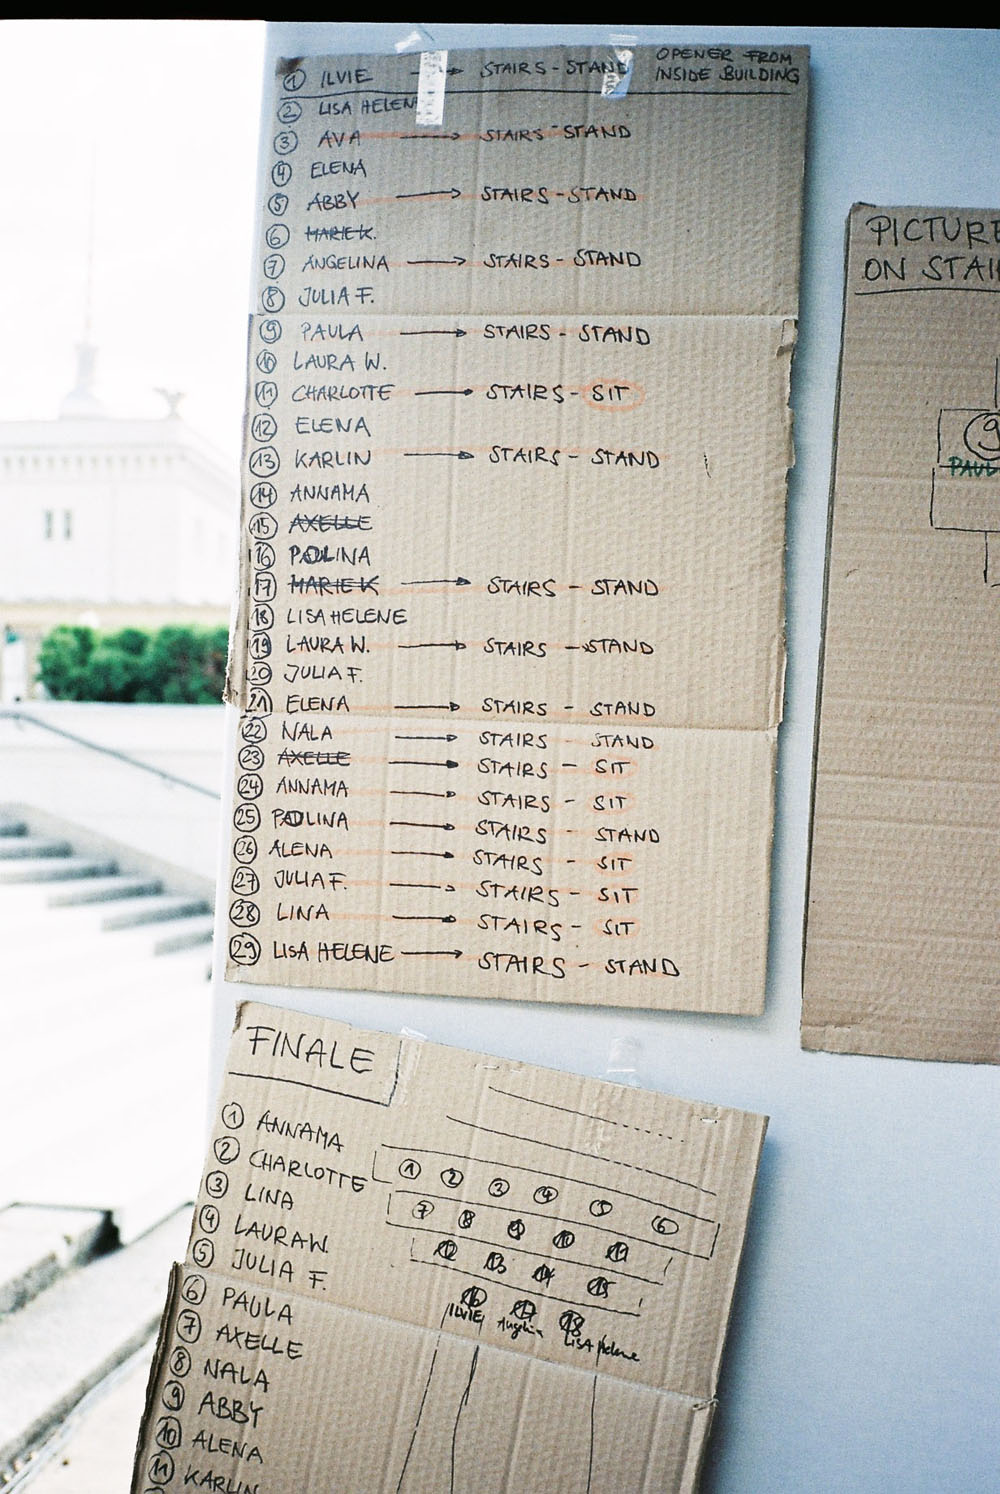 1 ILVIE → STAIRS - STAND OPENER FROM
INSIDE BUILDING
2 LISA HELEN
3 AVA → STAIRS - STAND
4 ELENA
5 ABBY → STAIRS - STAND
6 MARIE K.
7 ANGELINA → STAIRS - STAND
8 JULIA F.
9 PAULA → STAIRS - STAND
10 LAURA W.
11 CHARLOTTE → STAIRS - SIT
12 ELENA
13 KARLIN → STAIRS - STAND
14 ANNAMA
15 AXELLE
16 PAULINA
17 MARIE K → STAIRS - STAND
18 LISA HELENE
19 LAURA W. → STAIRS - STAND
20 JULIA F.
21 ELENA → STAIRS - STAND
22 NALA → STAIRS - STAND
23 AXELLE → STAIRS - SIT
24 ANNAMA → STAIRS - SIT
25 PAULINA → STAIRS - STAND
26 ALENA → STAIRS - SIT
27 JULIA F. → STAIRS - SIT
28 LINA → STAIRS - SIT
29 LISA HELENE → STAIRS - STAND
PICTURE
ON STAI
9
PAUL
FINALE
1 ANNAMA
2 CHARLOTTE
3 LINA
4 LAURA W.
5 JULIA F.
6 PAULA
7 AXELLE
8 NALA
9 ABBY
10 ALENA
11 KARLIN
1 2 3 4 5 6
7 8 9 10 11
12 13 14 15
16 17 18
ILVIE Angelina LISA Helene